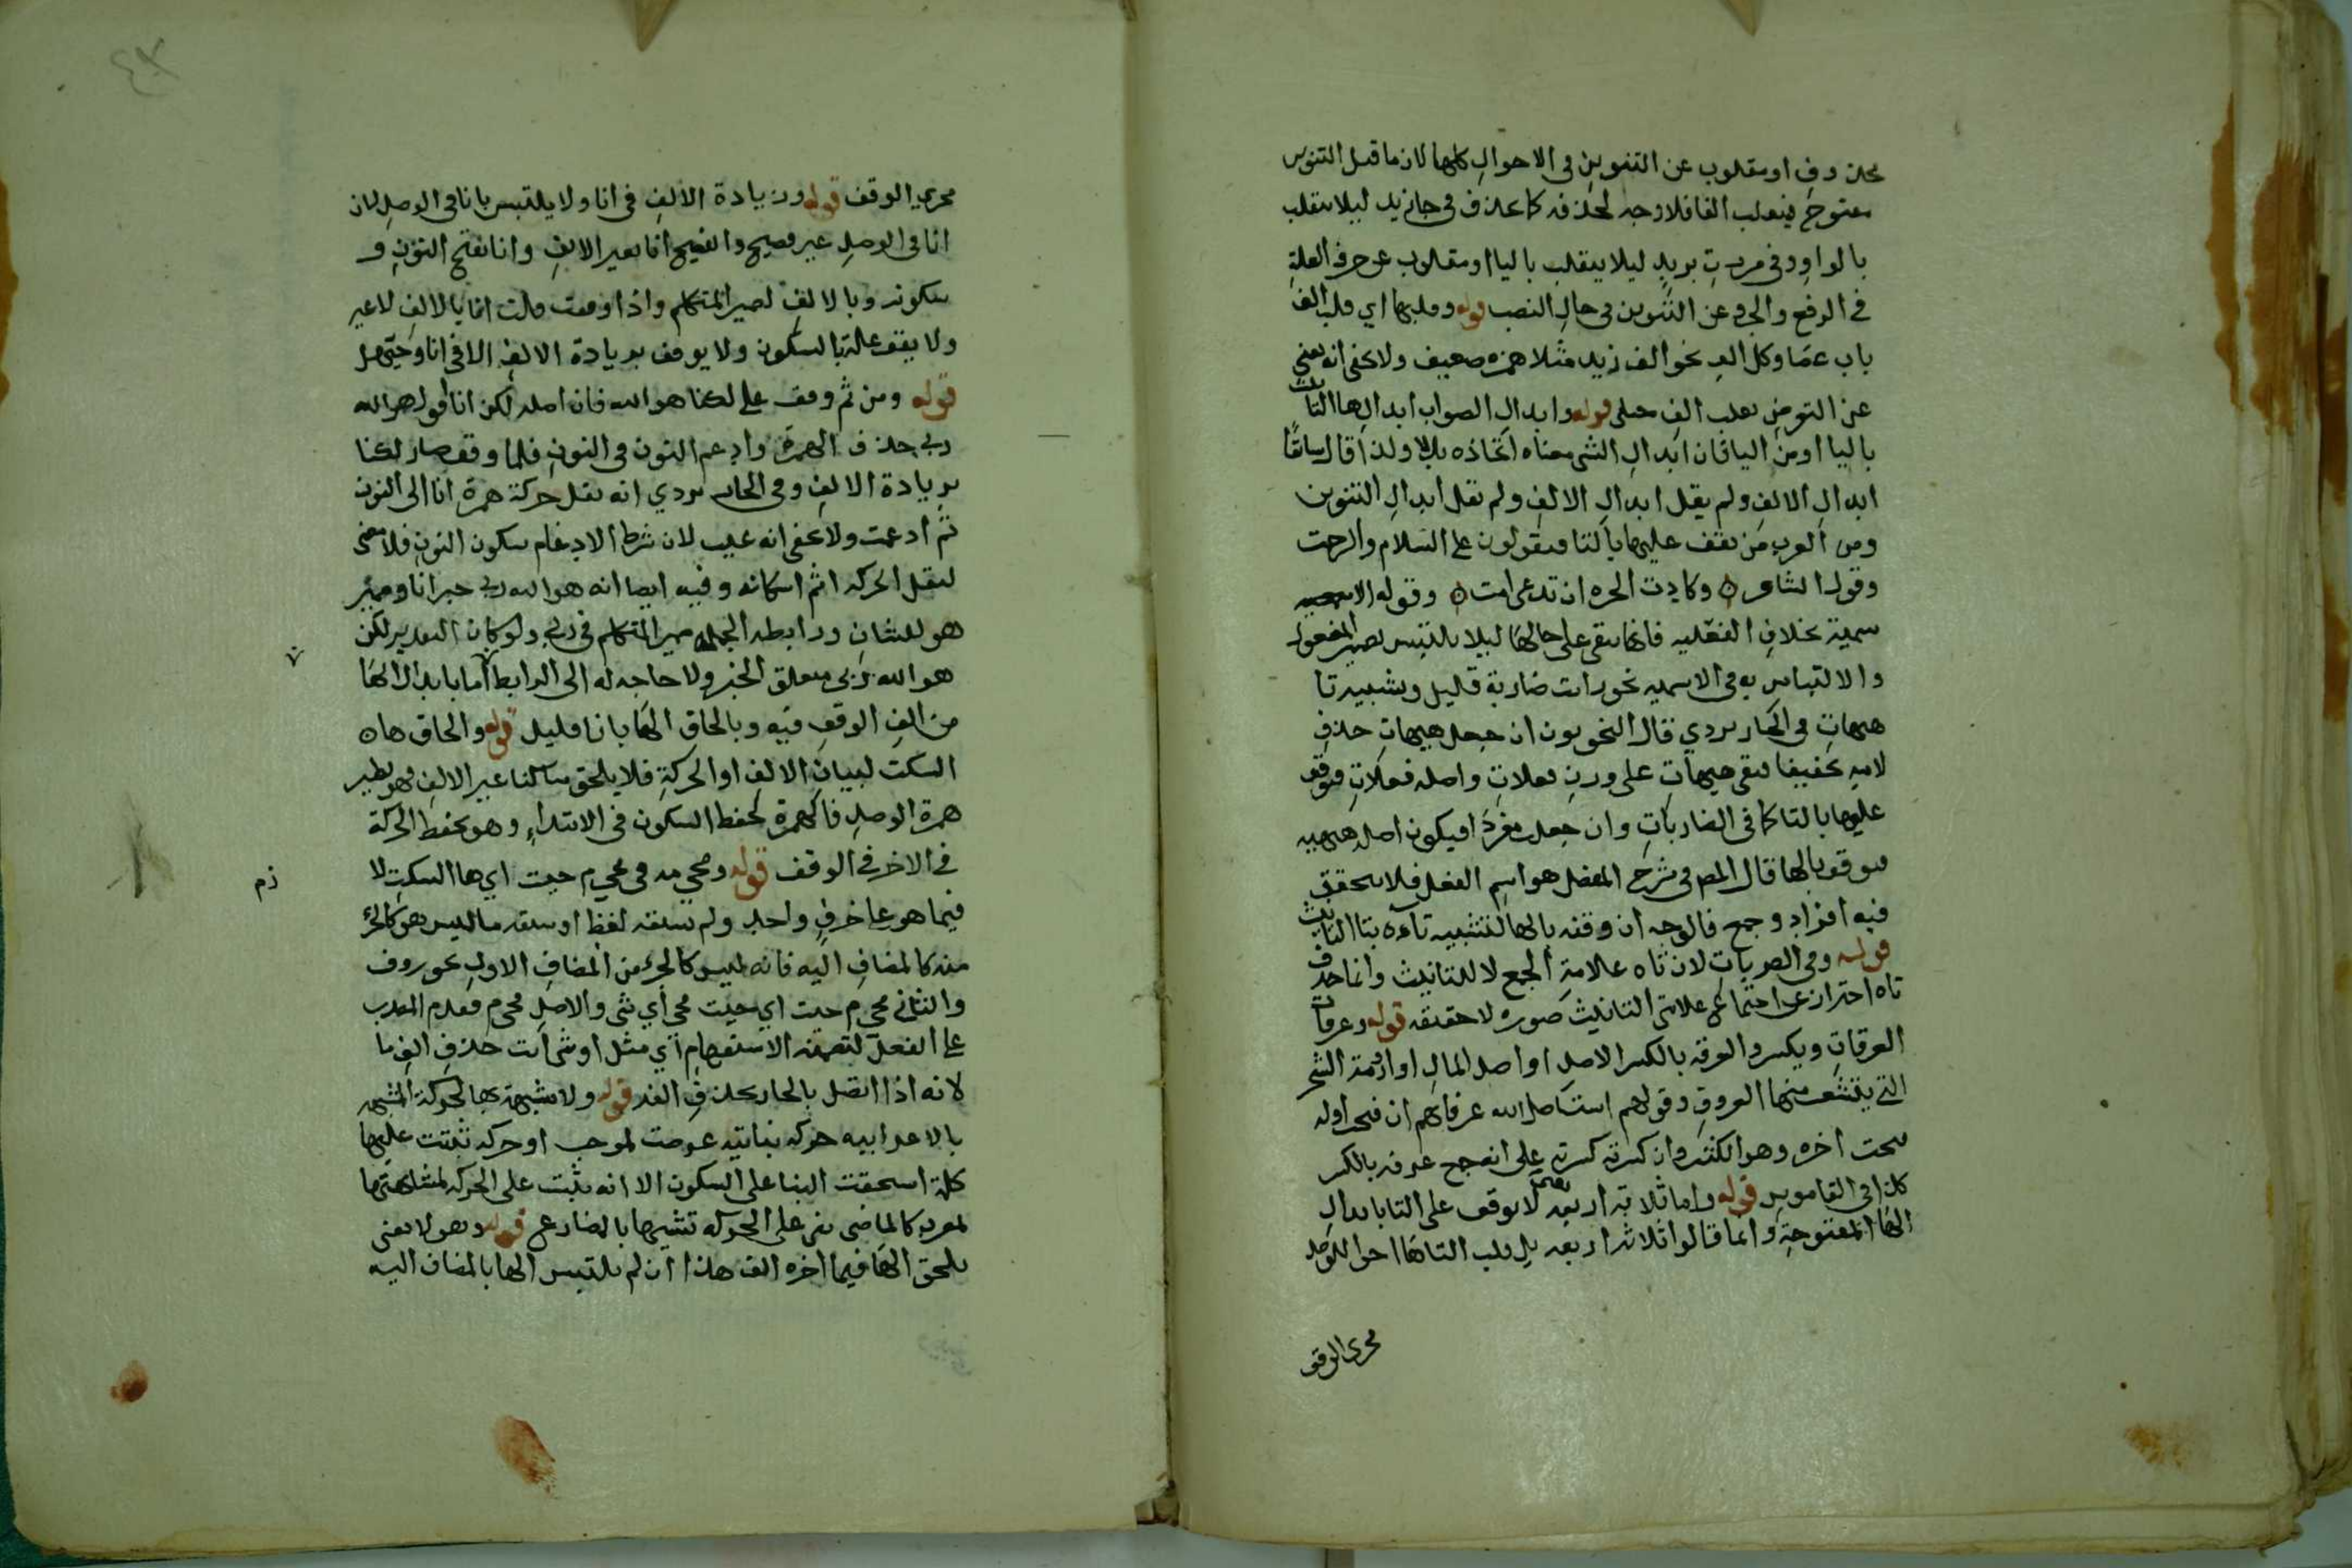 محذوف او مقلوب عن التنوين في الاحوالِ كلها لان ما قبل التنوين
مفتوح فينقلب الفا فلا وجه لحذفه كما يحذف في جاني زيد ليلا ينقلب
بالواو وفي مررت بزيدٍ ليلا ينقلب باليا او مقلوب عن حرف العلةِ
في الرفع والجر وعن التنوين في حالِ النصب قوله وقلبها اي قلب الف
باب عصَا وكل الف نحو الف زيد مثلا همزه ضعيف ولا يخفى انه يغني
عن التعرضِ لقلب الفِ حبلى قوله وابدالِ الصواب ابدالِها التا
باليا او من اليا فان ابدالِ الشي معناه اتخاذه بدلا ولذا قال سابقًا
ابدالِ الالفِ ولم يقل ابدالِ الالفِ ولم يقل ابدالِ التنوين
ومن العرب مَن يقف عليها بالتا فيقولون على السّلام والرحمت
وقول الشاعر ه وكادت الحره ان تدعى امت ه وقوله الاسمية
سمية بخلافِ الفعّليه فانها تبقى على حالهَا ليلا يلتبس بضمير المفعول
والالتباس به في الاسميه نحو رات ضاربة قليل وتشبيه تا
هيهاتِ في الجاربردي قال النحويون ان جعل هيهاتِ حذفِ
لامه تخفيفا فبقى هيهاتِ على وزنِ فعلاتِ واصله فعللاتِ فيوقف
عليها بالتا كما في الضارباتِ وان جعل مفردَا فيكون اصله هيهيه
فيوقف بالها قال المص في شرح المفصل هو اسم الفعل فلا يتحقق
فيه افراد وجمع فالوجه ان وقفه بالها لتشبيه تاءه بتا التانيث
قوله وفي الضرباتِ لان تاه علامة الجمع لا للتانيث وانما حذف
تاه احتراز عن اجتماع علامتي التانيث صوره لا حقيقه قوله وعرقات
العرقات ويكسر والعرقه بالكسر الاصلِ او اصل المالِ او ارومة الشجر
التي يتشعب منها العروق وقولهم استاصل الله عرقاتهم ان فتحت اوله
فتحت اخره وهو الكثير وان كسرته كسرته على انه جمع عرقه بالكسر
كذا في القاموس قوله واما ثلاثه اربعه لا يوقف على التا بابدالِ
الهَا المفتوحةِ وانما قالوا ثلاثه اربعه بل قلب التا هَا اجرا للوصل
مجرى الوقف
مجري الوقف قوله وزيادة الالفِ في انا ولا يلتبس بانا في الوصلِ لان
انا في الوصلِ غير فصيح والفصيح انا بغير الالفِ وانا بفتح النونِ و
سكونه وبالالفِ لضمير المتكلم واذا وقفت قلت انا بالالفِ لا غير
ولا يقف عليه بالسكون ولا يوقف بزيادة الالفِ الا في انا وحيّهل
قوله ومن ثم وقف على لكنا هو الله فان اصله لكن انا اقول هو الله
ربي حذف الهمزة وادغم النون في النونِ فلما وقف صار لكنا
بزيادة الالفِ وفي الجاربردي انه نقل حركة همزة انا الى النون
ثم ادغمت ولا يخفى انه عيب لان شرط الادغام سكون النونِ فلا معنى
لنقل الحركه اثم اسكانه وفيه ايضا انه هو الله ربي خبر انا وضمير
هو للشانِ ورابطه الجمله ضمير المتكلم في ربي ولو كان التقدير لكن
هو الله ربي متعلق الخبر ولا حاجه له الى الرابط اما بابدال الهَا
من الفِ الوقفِ فيه وبالحاق الهَا بانا فقليل قوله والحاق هاه
السكت لبيانِ الالفِ او الحركةِ فلا يلحق ساكنا غير الالفِ وهو نظير
همزة الوصلِ فالهمزة لحفظ السكون في الابتداءِ وهو يحفظ الحركة
في الاخر في الوقف قوله ومجي مه في مجي م جيت اي ها السكتِ لا
فيما هو على حرفٍ واحدٍ ولم يسبقه لفظ او سبقه ما ليس هو كالجزء
منه كالمضافِ اليه فانه ليس كالجزء من المضافِ الاولِ نحو روف
والثاني مجي م جيت اي جيت مجي اي شي والاصلِ مجي م فقدم المصدر
على الفعلّ لتضمنه الاستفهامِ اي مثل اي شي انت حذفِ الفِ ما
لانه اذا اتصل بالجار يحذف الفه قوله ولا مشبهة بها لحركة المشبهه
بالاعرابيه حركه بنائيه عرضت لموجب او حركه ثبتت عليها
كلمة استحقت البنا على السكون الا انه ثبت على الحركه لمشابهتها
لمعرب كالماضي بني على الحركه تشبيها بالمضارع قوله وهولا يعني
يلحق الهَا فيما اخره الف هذا ان لم يلتبس الها بالمضاف اليه
زم